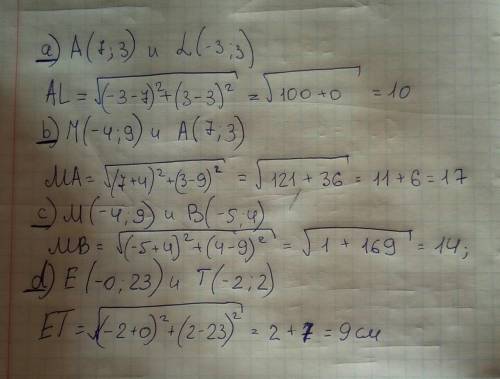 a) A(7;3) и L(-3;3)
AL=√(-3-7)²+(3-3)² = √100+0 = 10
b) M(-4;9) и A(7;3)
MA=√(7+4)²+(3-9)² = √121+36 = 11+6=17
c) M(-4;9) и B(-5;4)
MB=√(-5+4)²+(4-9)² = √1+169 = 14;
d) E(-0;23) и T(-2;2)
ET=√(-2+0)²+(2-23)² = 2+7 = 9см